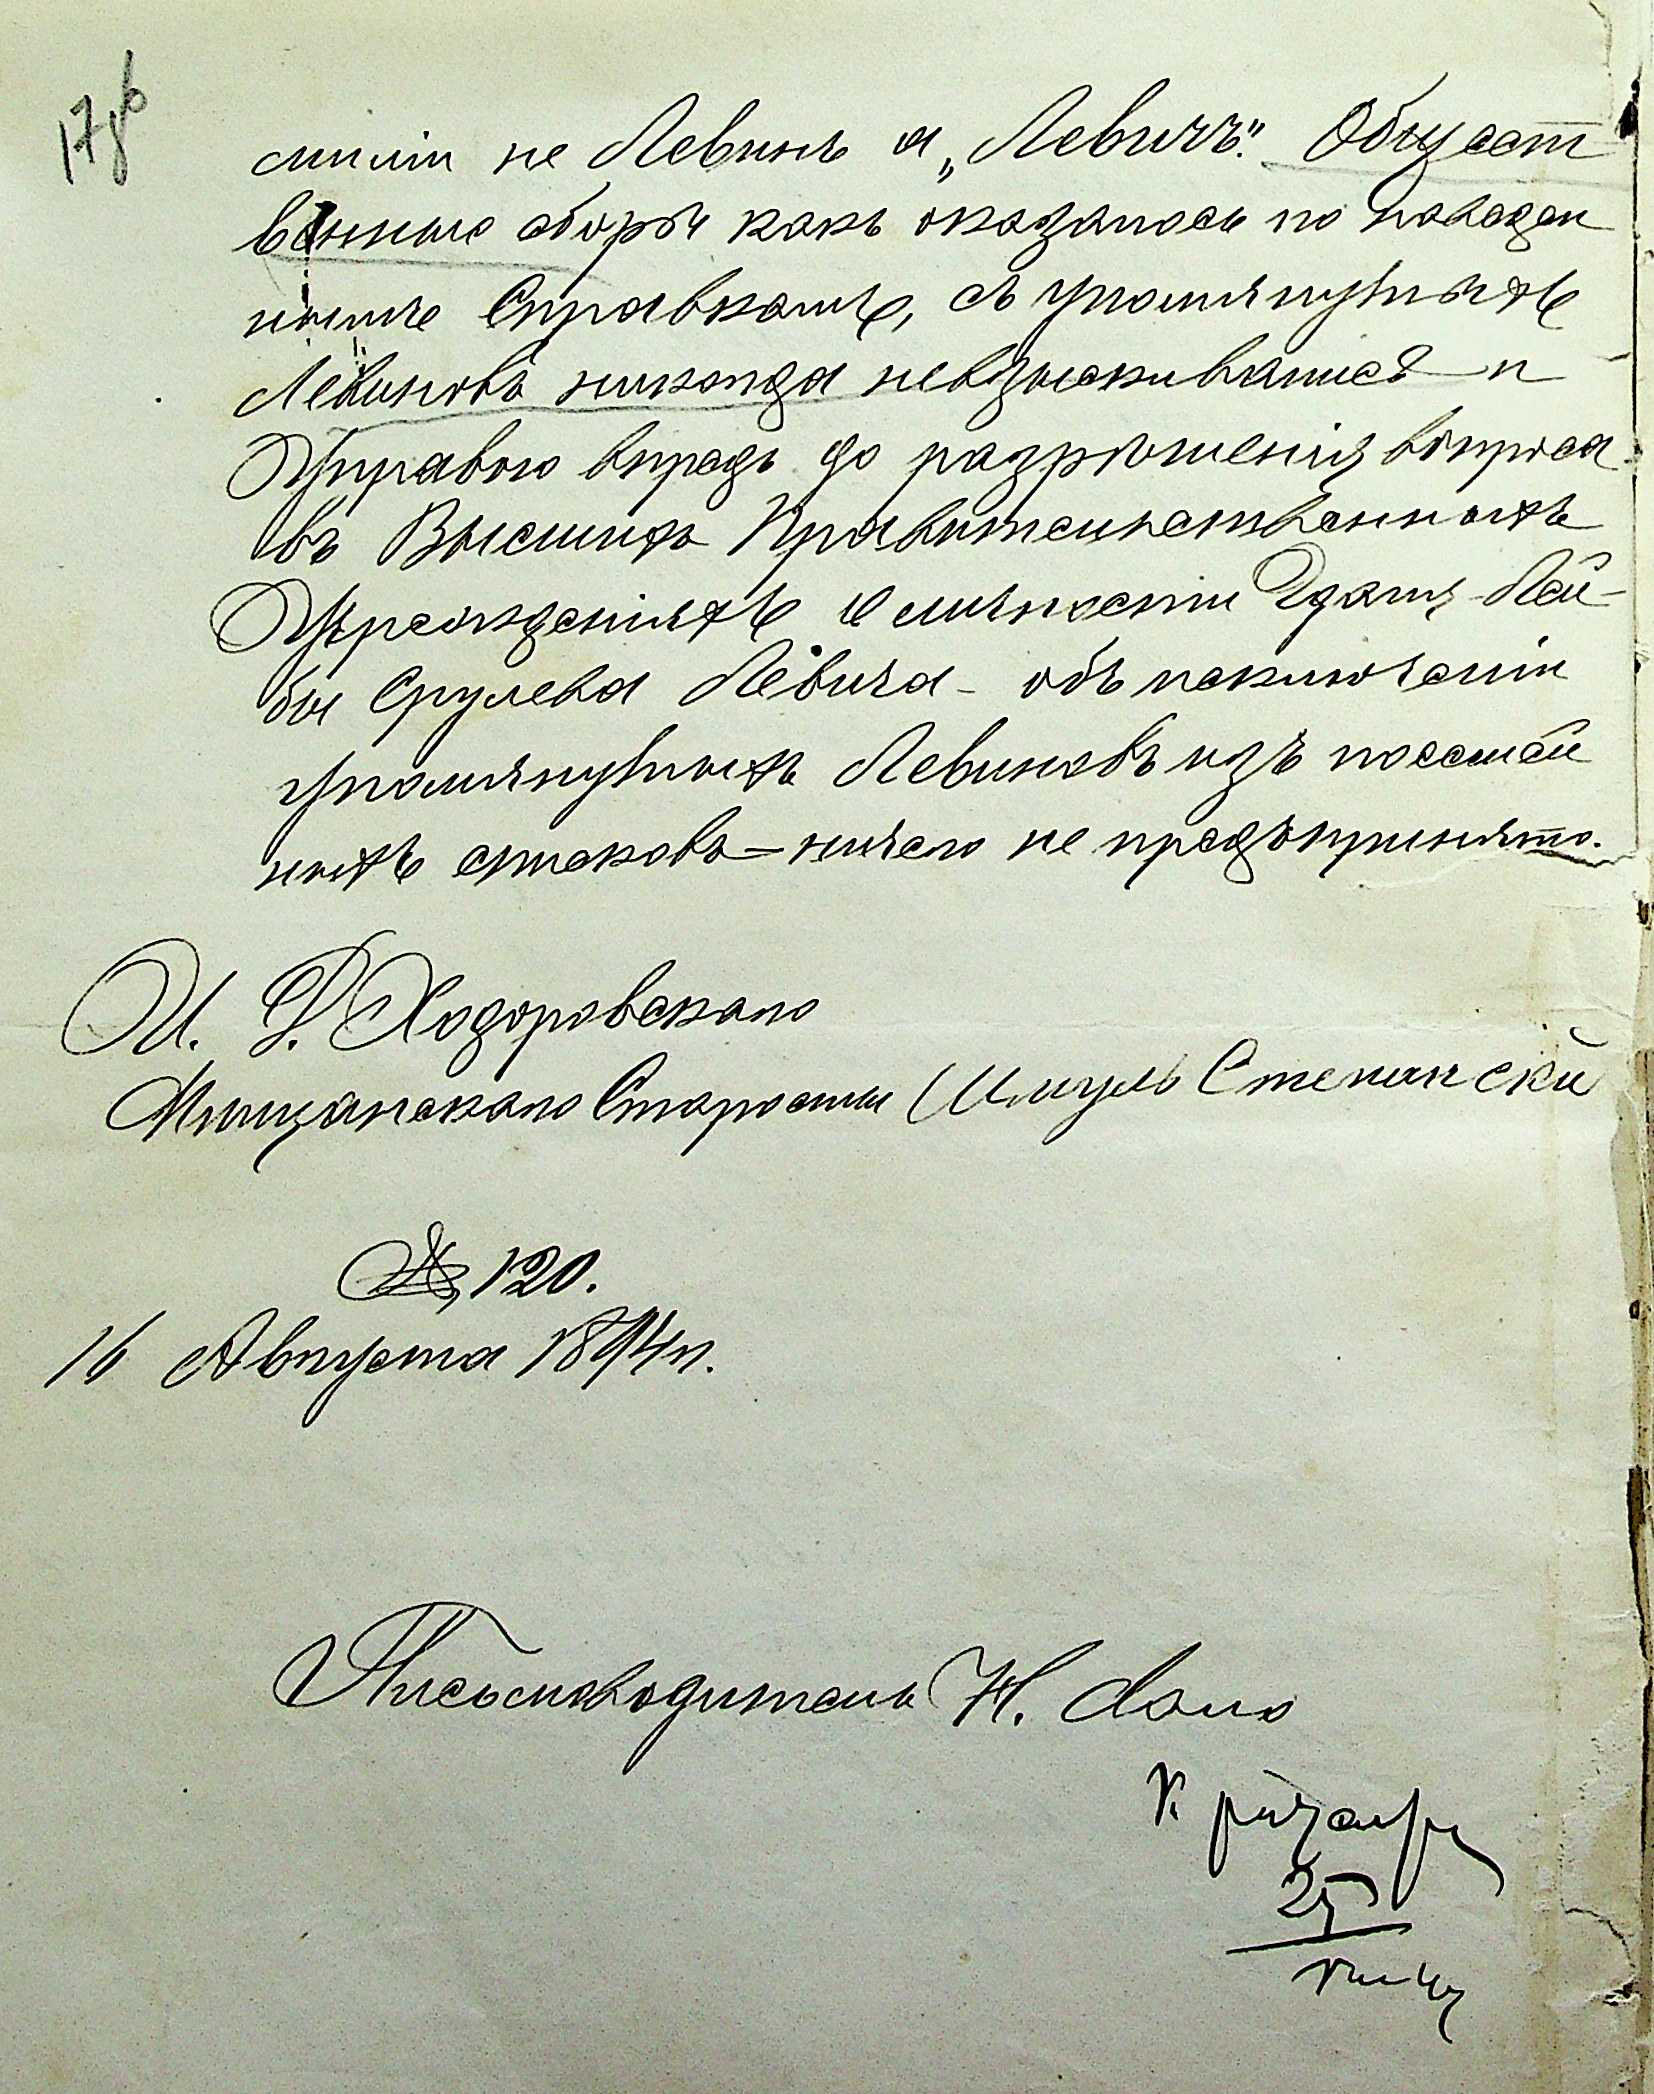 17 об
миліи не Левинъ а „Левичъ“. Общест
венные сборы какъ оказалось по наведен
нымъ Справкамъ, съ упомянутыхъ
Левиновъ никогда невзыскивались и
Управою впредь до разрѣшенія вопроса
въ Высшихъ Правительственныхъ
Учрежденіяхъ о личности Гдаля-Лей-
бы Срулева Левича - объ исключеніи
упомянутыхъ Левиновъ изъ посемей
ныхъ списковъ - ничего не предъпринято.
И. Д. Ходоровскаго
Мѣщанскаго Старосты Шмуль Степанскій
№ 120.
16 Августа 1894 г.
Письмоводитель Н.
К
25